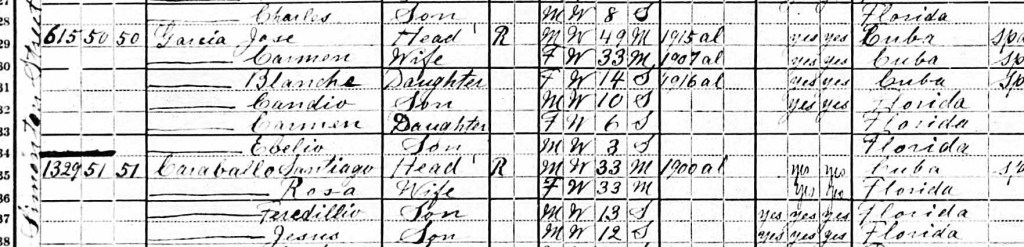 Charles Son M W 8 S Florida
29 615 50 50 Garcia Jose Head 1 R M W 49 M 1915 al yes yes Cuba Spa
30 Carmen Wife F W 33 M 1907 al yes yes Cuba Sp
31 Blanche Daughter F W 14 S 1916 al yes yes Cuba Sp
32 Candio Son M W 10 S yes yes Florida
33 Carmen Daughter F W 6 S Florida
34 Evelio Son M W 3 S Florida
35 1329 51 51 Caraballo Santiago Head 1 R M W 33 M 1900 al yes yes Cuba Sp
36 Rosa Wife F W 33 M yes yes Florida
37 Feredillio Son M W 13 S yes yes yes Florida
38 Jesus Son M W 12 S yes yes yes Florida